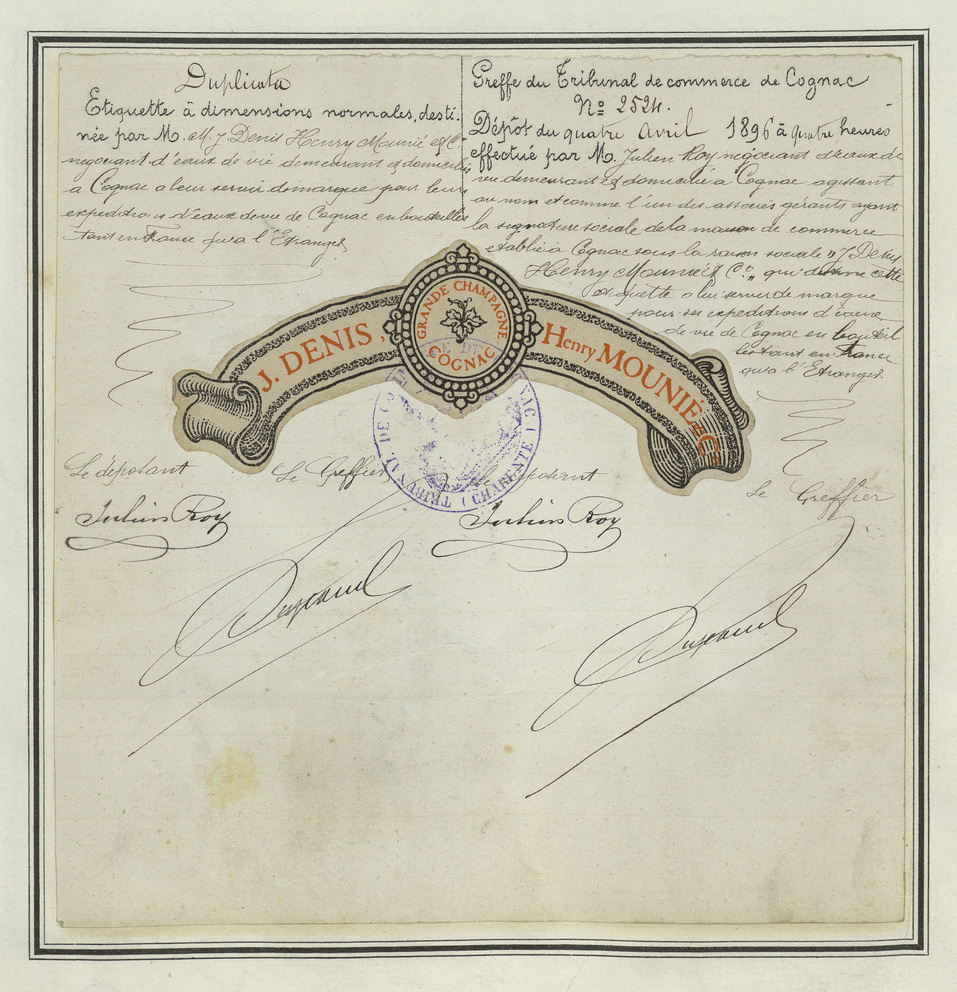 Duplicata
Etiquette à dimensions normales, desti-
née par M. M. J Denis Henry Mounié & Cie
négociant d'eaux de vie demeurant et domiciliés
à Cognac a leur servir de marque pour leurs
expeditions d'eaux de vie de Cognac en bouteilles
tant en France qu'a l'Etranger
Greffe du Tribunal de commerce de Cognac
No 2524.
Dépôt du quatre Avril 1896 à quatre heures
effectué par M. Julien Roy négociant d'eaux de
vie demeurant et domicilié a Cognac agissant
au nom et comme l'un des associés gérants ayant
la signature sociale de la maison de commerce
etablie à Cognac sous la raison sociale "J Denis
Henry Mounié & Co" qui destine cette
étiquette a lui servir de marque
pour ses expeditions d'eaux
de vie de Cognac en bouteil
les tant en France
qu'a l'Etranger
J. DENIS, Henry MOUNIÉ & Co
GRANDE CHAMPAGNE
COGNAC
TRIBUNAL DE COGNAC (CHARENTE)
Le déposant
Le Greffier
Le déposant
Le Greffier
Julien Roy
Julien Roy